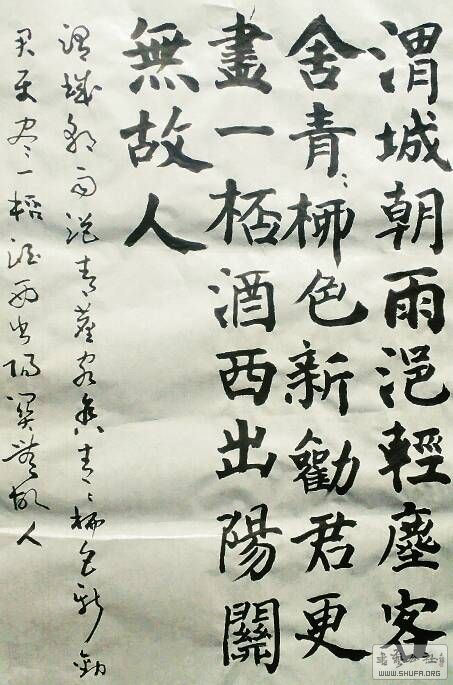 渭城朝雨浥輕塵客
舍青〻柳色新勸君更
畫一桮酒西出陽關
無故人
渭城朝雨浥輕塵客舍青〻柳色新勸
君更盡一桮酒西出陽關無故人
WWW.SHUFA.ORG